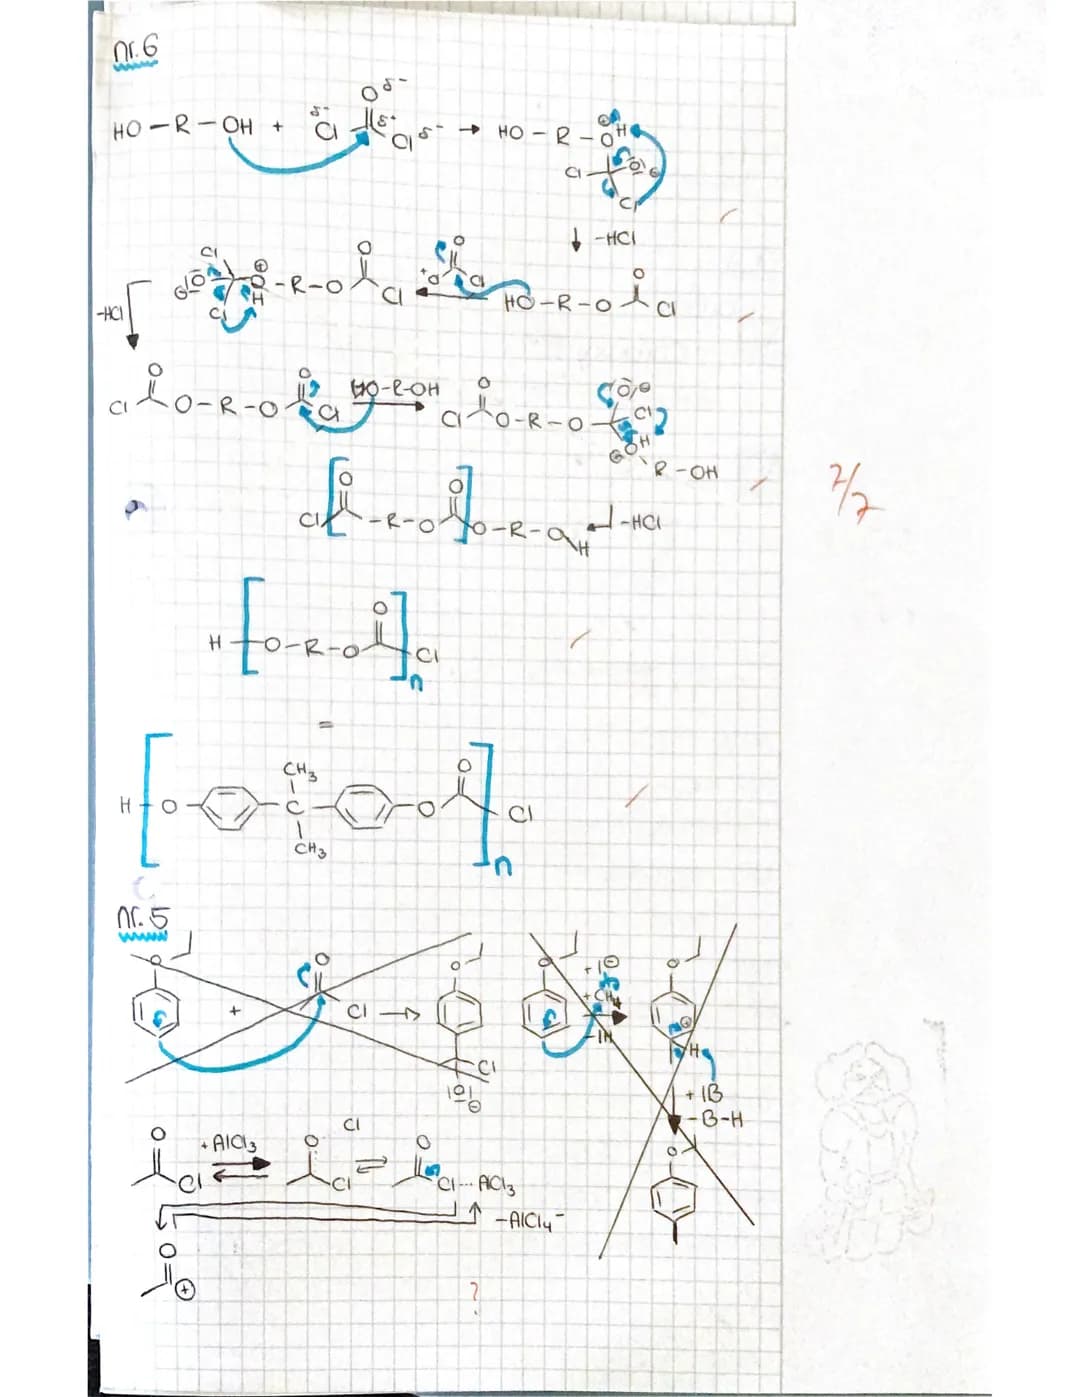 nr. 6
HO – R – OH + Cl δ- O δ- δ+ Cl δ- → HO – R – O ⊕ H
Cl O ⊖
Cl
↓ -HCl
Cl ⊖ O ⊕ O H Cl - R - O O Cl O Cl HO - R - O O Cl
-HCl
Cl O O - R - O O Cl HO-R-OH Cl O O - R - O O ⊖ Cl
OH
R - OH
Cl O - R - O O O - R - O H -HCl
H O - R - O O Cl
n
=
CH3
H O C O O Cl
CH3
n
nr. 5
O + O Cl → O Cl O ⊖
O + I ⊖ + CH4 - IH O ⊕ H
+ IB
- B-H
O
O Cl + AlCl3 O Cl Cl ⇌ O Cl ... AlCl3
- AlCl4 -
O ⊕
?
7/7